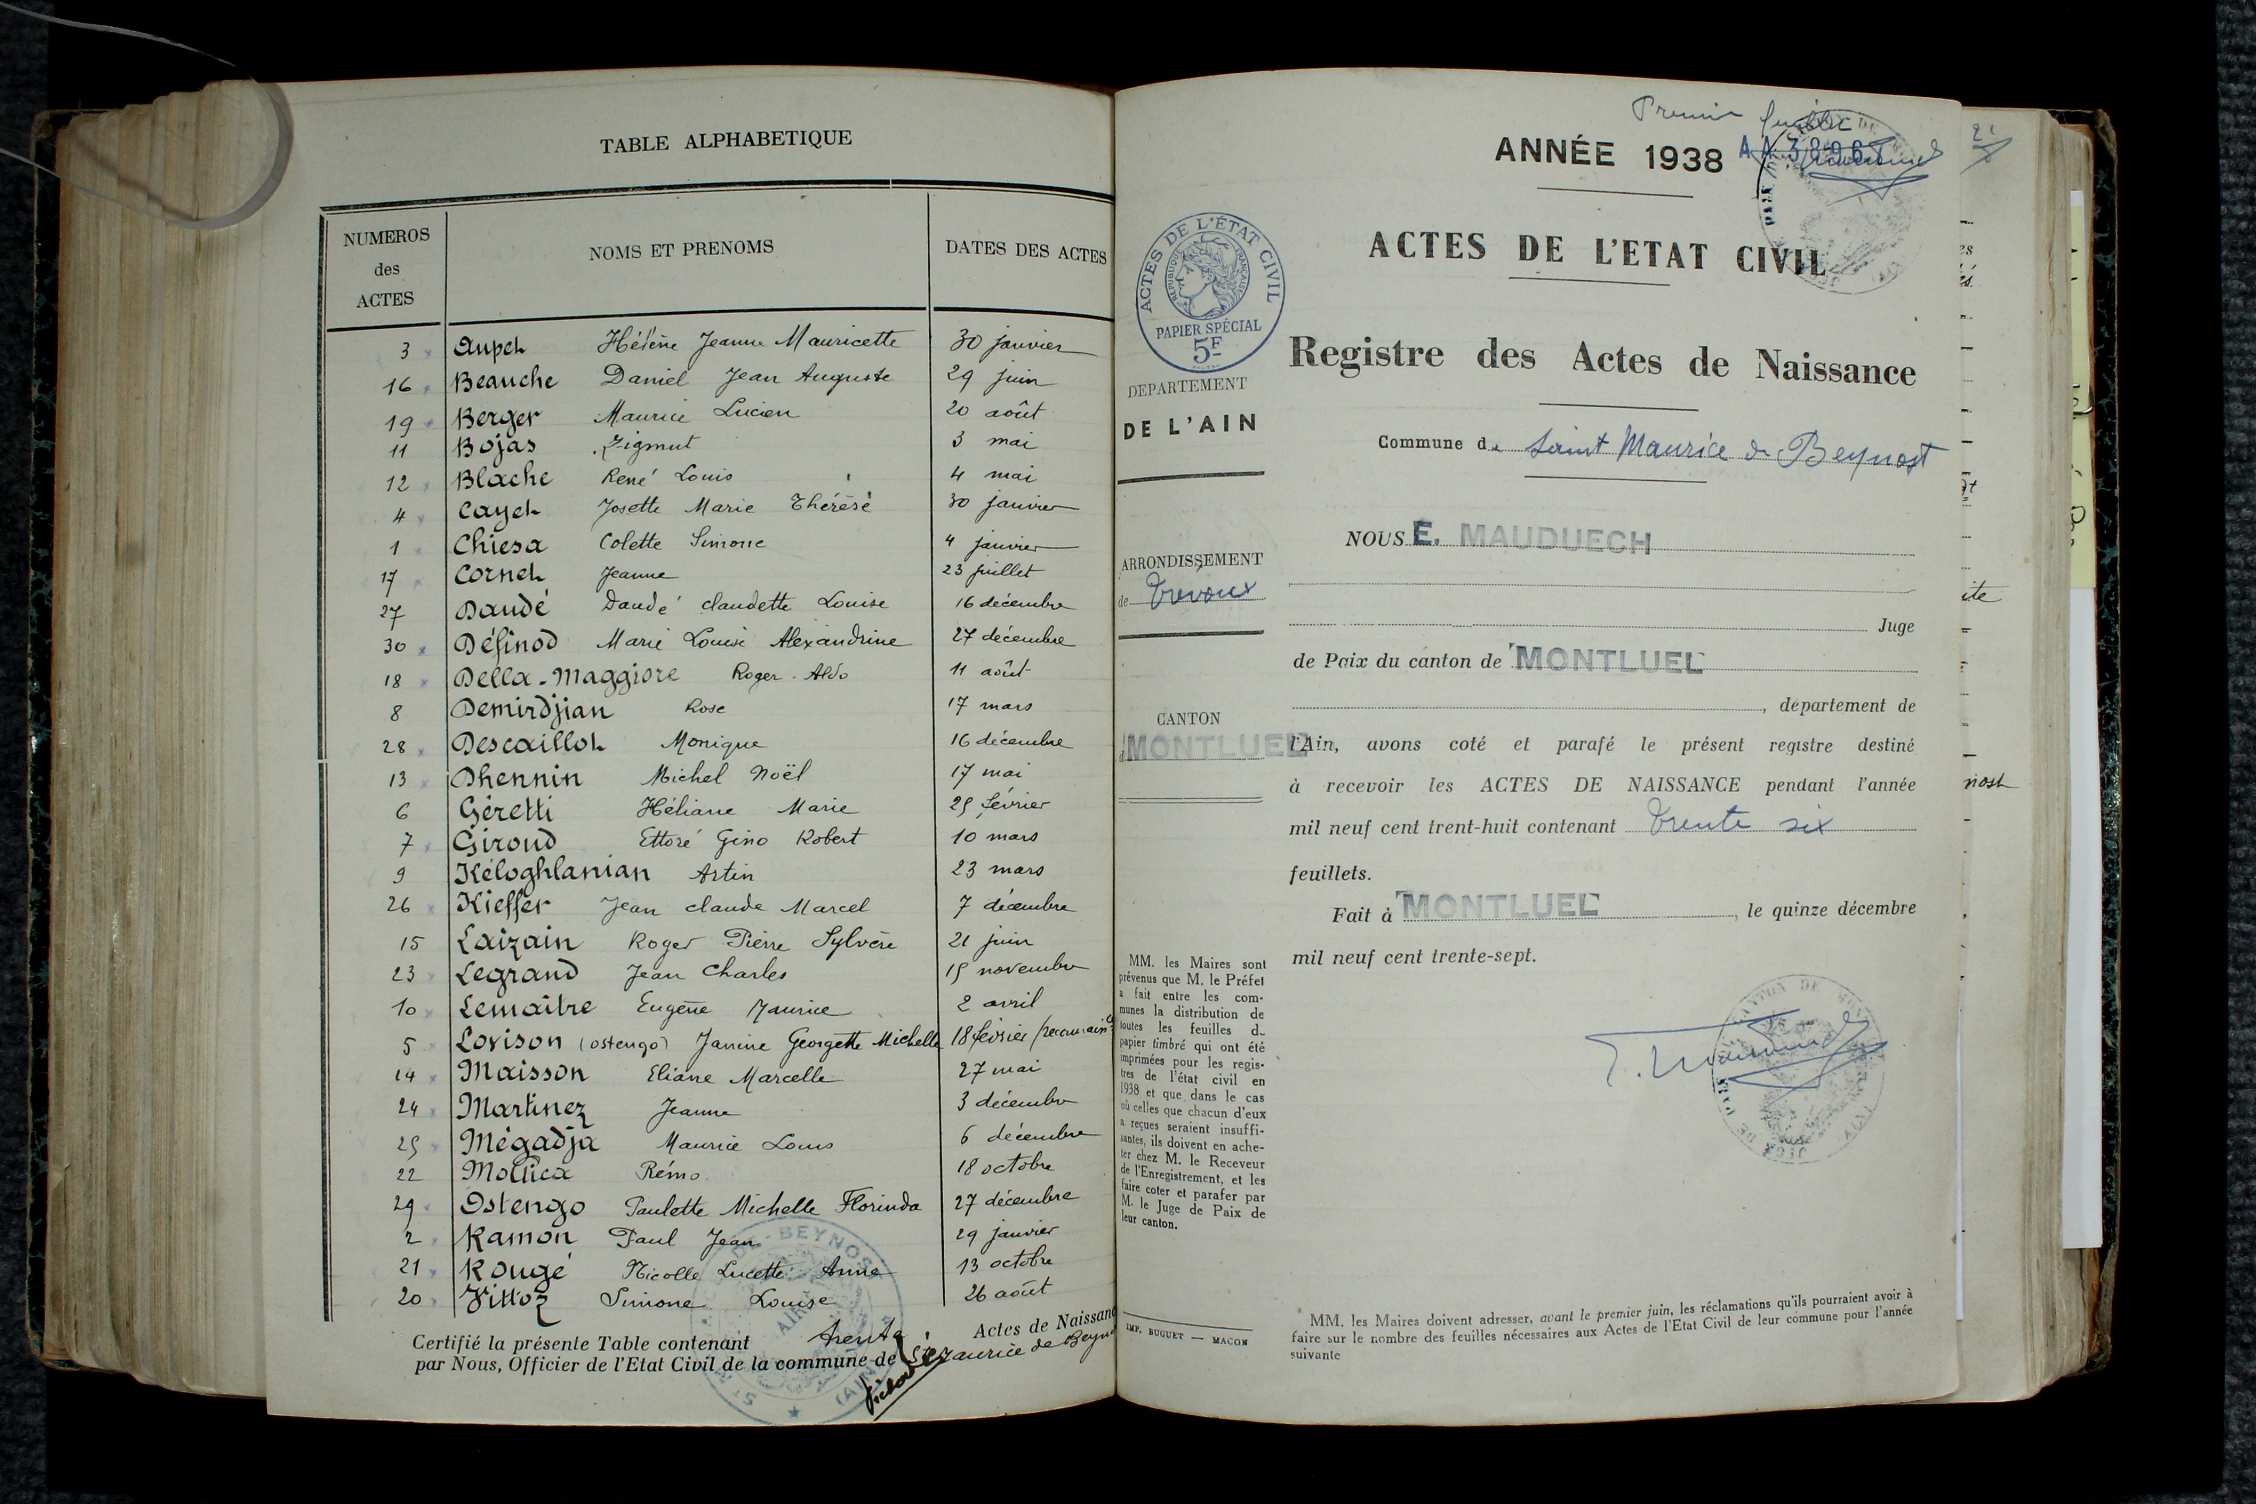 TABLE ALPHABETIQUE
NUMEROS des ACTES
NOMS ET PRENOMS
DATES DES ACTES
3 Aupet Hélène Jeanne Mauricette 30 janvier
16 Beauche Daniel Jean Auguste 29 juin
19 Berger Maurice Lucien 20 août
11 Bojas Zigmut 3 mai
12 Blache René Louis 4 mai
4 Cayet Josette Marie Thérèse 30 janvier
1 Chiesa Colette Simone 4 janvier
17 Cornet Jeanne 23 juillet
27 Daudé Daudé Claudette Louise 16 décembre
30 Définod Marie Louise Alexandrine 27 décembre
18 Della-Maggiore Roger Aldo 11 août
8 Demirdjian Rose 17 mars
28 Descaillot Monique 16 décembre
13 Dhennin Michel Noël 17 mai
6 Géretti Héliane Marie 25 février
7 Giroud Ettoré Gino Robert 10 mars
9 Kéloghlanian Artin 23 mars
26 Kieffer Jean claude Marcel 7 décembre
15 Laizain Roger Pierre Sylvère 21 juin
23 Legrand Jean Charles 15 novembre
10 Lemaître Eugène Maurice 2 avril
5 Lovison (Ostengo) Janine Georgette Michelle 18 février
14 Maisson Eliane Marcelle 27 mai
24 Martinez Jeanne 3 décembre
25 Mégadja Maurice Louis 6 décembre
22 Mollica Rémo 18 octobre
29 Ostengo Paulette Michelle Florinda 27 décembre
2 Ramon Paul Jean 29 janvier
21 Rougé Nicolle Lucette Anne 13 octobre
20 Vittoz Simone Louise 26 août
Certifié la présente Table contenant trente Actes de Naissanc
par Nous, Officier de l'Etat Civil de la commune de St Maurice de Beyno
Premier feuillet
ANNÉE 1938
ACTES DE L'ETAT CIVIL
ACTES DE L'ÉTAT CIVIL
RÉPUBLIQUE FRANÇAISE
PAPIER SPÉCIAL
5F
Registre des Actes de Naissance
DEPARTEMENT
DE L'AIN
Commune de Saint Maurice de Beynost
ARRONDISSEMENT
de Trévoux
CANTON
d MONTLUEL
NOUS E. MAUDUECH
Juge
de Paix du canton de MONTLUEL
, département de
l'Ain, avons coté et parafé le présent registre destiné
à recevoir les ACTES DE NAISSANCE pendant l'année
mil neuf cent trent-huit contenant Trente six
feuillets.
Fait à MONTLUEL, le quinze décembre
mil neuf cent trente-sept.
MM. les Maires sont
prévenus que M. le Préfet
a fait entre les com-
munes la distribution de
toutes les feuilles d
papier timbré qui ont été
imprimées pour les regis-
tres de l'état civil en
1938 et que dans le cas
où celles que chacun d'eux
a reçues seraient insuffi-
santes, ils doivent en ache-
ter chez M. le Receveur
de l'Enregistrement, et les
faire coter et parafer par
M. le Juge de Paix de
leur canton.
IMP. BUGUET — MACON
MM. les Maires doivent adresser, avant le premier juin, les réclamations qu'ils pourraient avoir à
faire sur le nombre des feuilles nécessaires aux Actes de l'Etat Civil de leur commune pour l'année
suivante